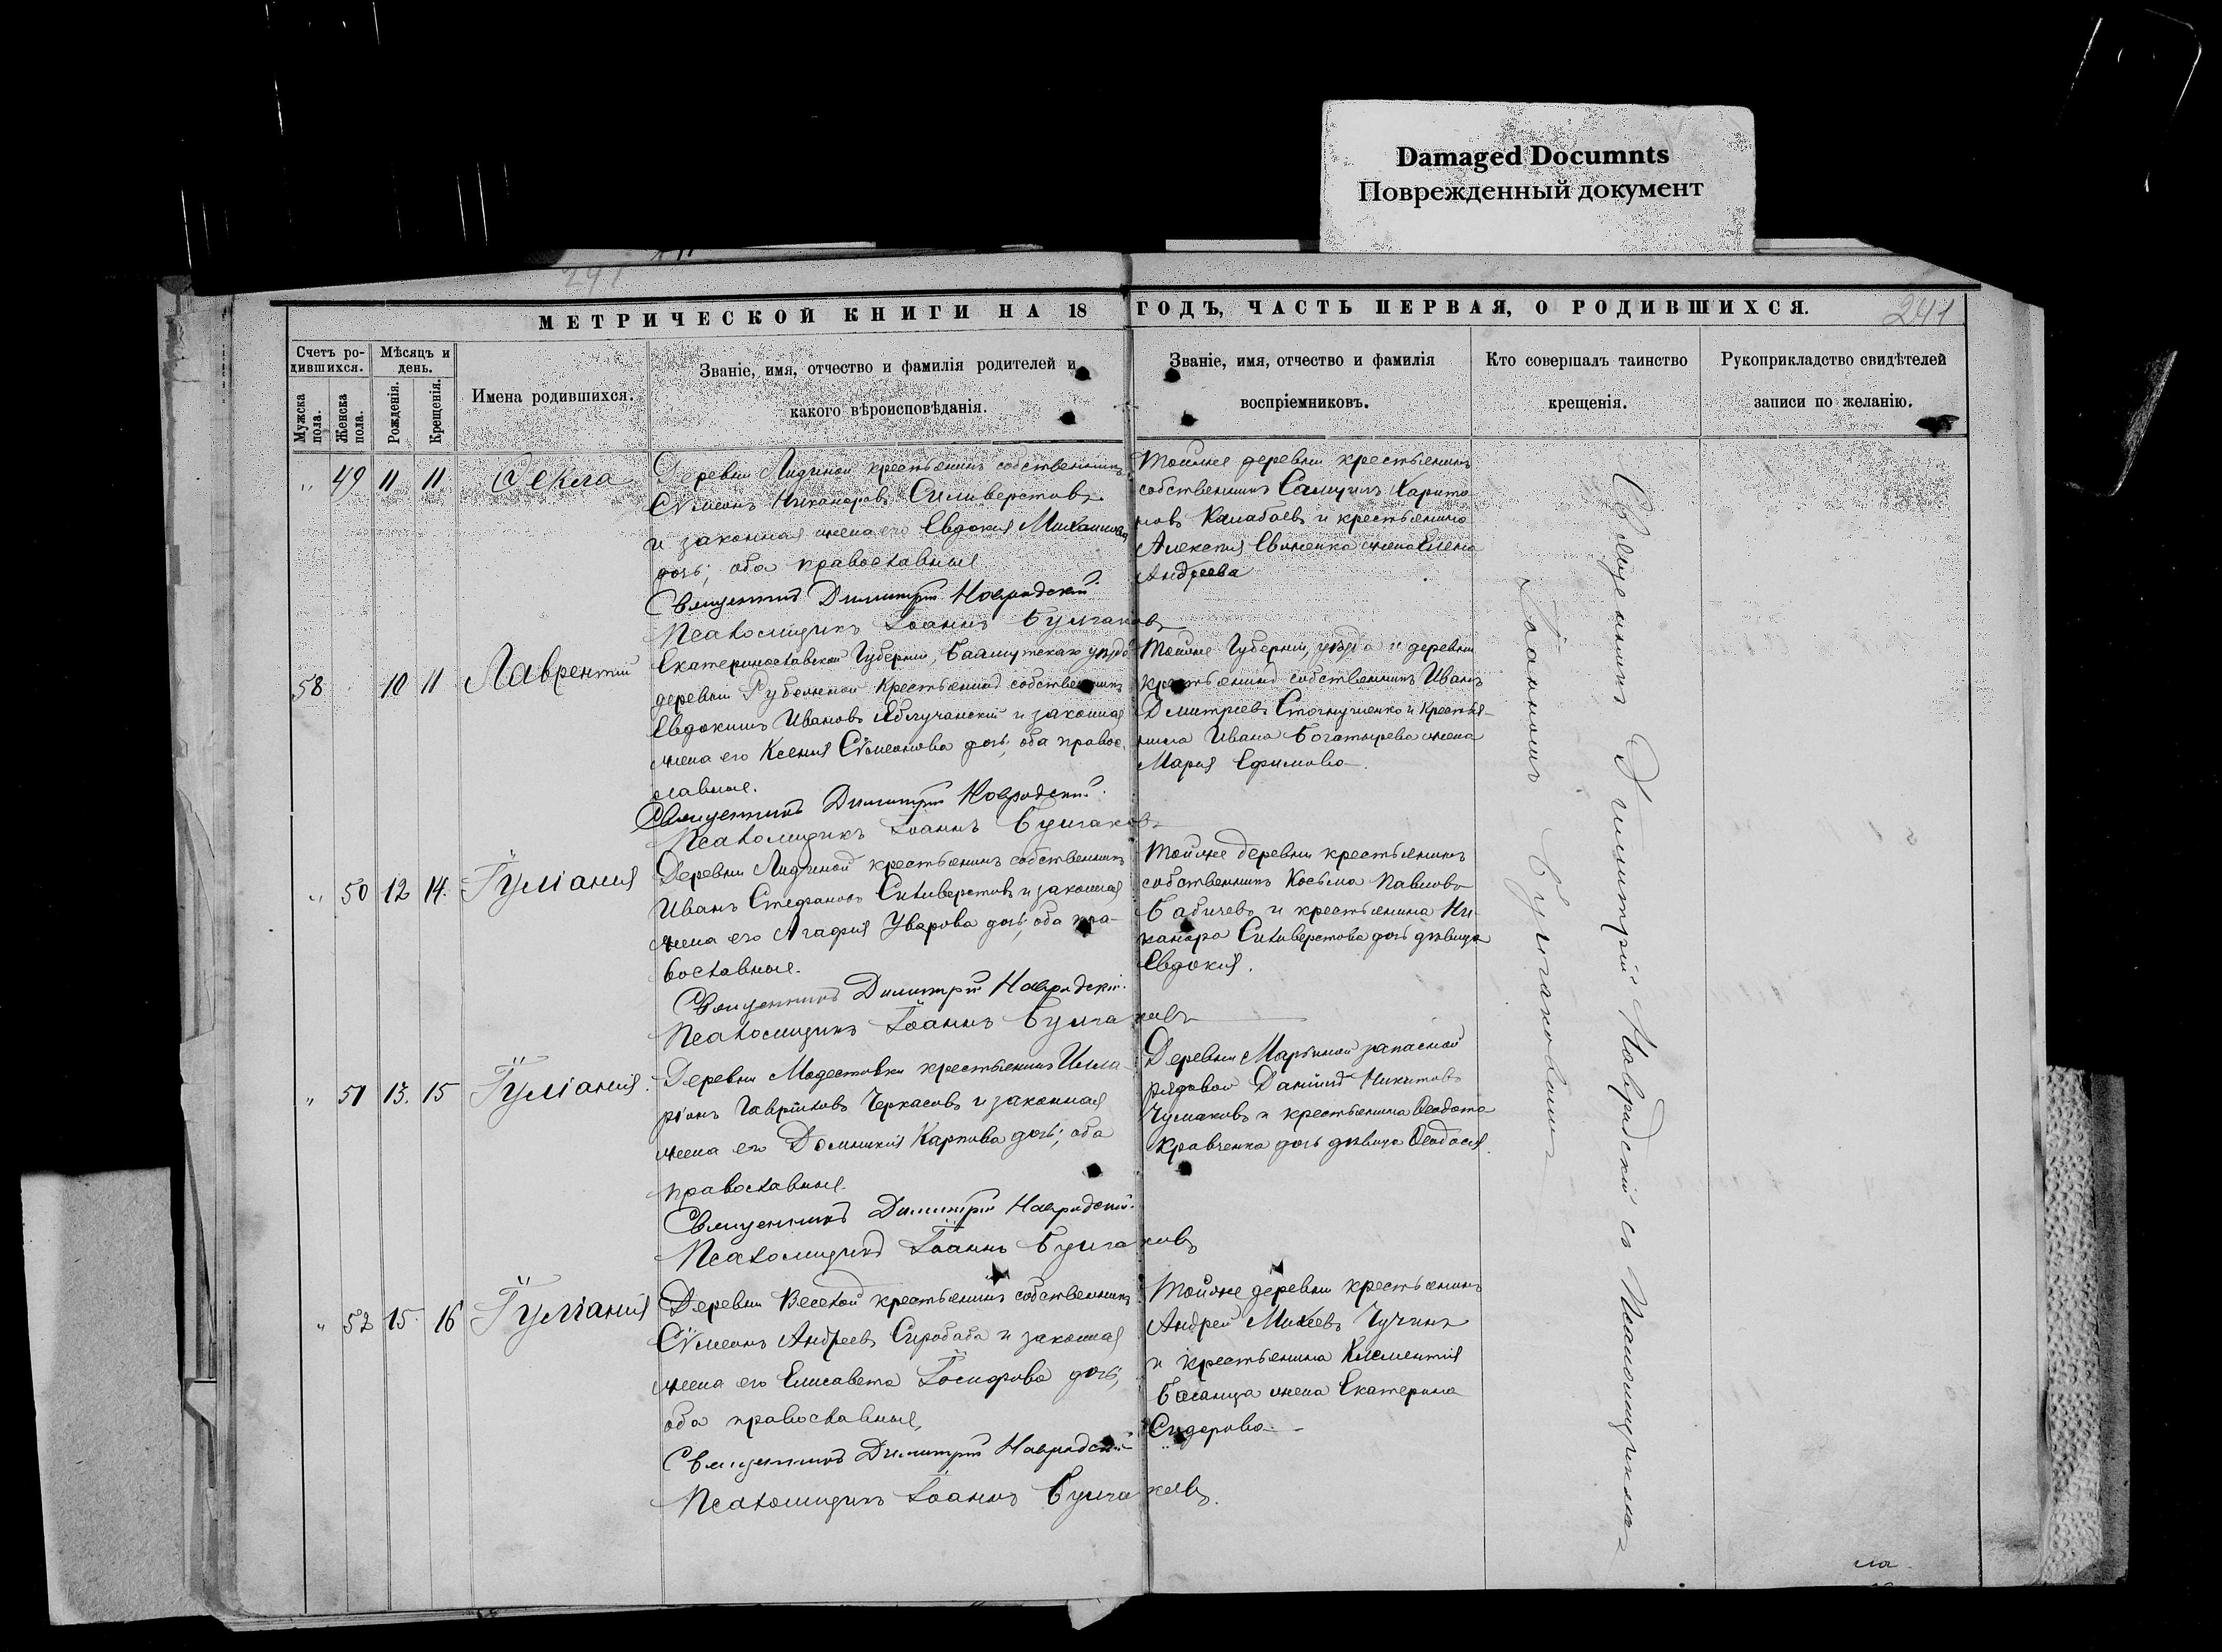 Damaged Documnts
Поврежденный документ
241
241
МЕТРИЧЕСКОЙ КНИГИ НА 18 ГОДЪ, ЧАСТЬ ПЕРВАЯ, О РОДИВШИХСЯ.
Счетъ ро-
дившихся.
Мужска пола.
Женска пола.
Мѣсяцъ и
день.
Рожденія.
Крещенія.
Имена родившихся.
Званіе, имя, отчество и фамилія родителей и
какого вѣроисповѣданія.
Званіе, имя, отчество и фамилія
воспріемниковъ.
Кто совершалъ таинство
крещенія.
Рукоприкладство свидѣтелей
записи по желанію.
" 49 11 11 Ѳекла
Деревни Лидиной крестьянинъ собственникъ
Сѵмеонъ Никаноровъ Силиверстовъ
и законная жена его Евдокия Михаилова
дочь; оба православные
Священникъ Димитрій
Псаломщикъ Іоаннъ Булгаковъ
Тойже деревни крестьянинъ
собственникъ Самуилъ Харито-
новъ Калабаевъ и крестьянина
Алексия жена Елена
Андреева
58 10 11 Лаврентій
Екатеринославской Губерніи, Бахмутскаго уѣзда
деревни Рубежной Крестьянинъ собственникъ
Евдокимъ Ивановъ Яблучанскій и законная
жена его Ксения Сѵмеонова дочь, оба правос-
лавные.
Священникъ Димитрій
Псаломщикъ Іоаннъ Булгаковъ
Тойже Губерніи, уѣзда и деревни
крестьянинъ собственникъ Иванъ
Дмитріевъ и Крестья-
нина Ивана Богатырева жена
Мария Ефимова.
" 50 12 14. Іуліания
Деревни Лидиной крестьянинъ собственникъ
Иванъ Стефановъ Силиверстовъ и законная
жена его Агафия Уварова дочь, оба пра-
вославные.
Священникъ Димитрій
Псаломщикъ Іоаннъ Булгаковъ
Тойже деревни крестьянинъ
собственникъ Косьма Павловъ
Бабичевъ и крестьянина Ни-
канора Силиверстова дочь дѣвица
Евдокия.
" 51 13. 15 Іуліания.
Деревни Модестовки крестьянинъ Илла-
ріонъ Гавріиловъ Черкасовъ и законная
жена его Домникия Карпова дочь; оба
православные.
Священникъ Димитрій
Псаломщикъ Іоаннъ Булгаковъ
Деревни Марьиной запасной
рядовой Даніилъ Никитовъ
Чумаковъ и крестьянина Ѳеодота
Кравченка дочь дѣвица Ѳеодосия.
" 52 15. 16 Іуліания
Деревни Веселой крестьянинъ собственникъ
Сѵмеонъ Андреевъ Сиробаба и законная
жена его Елисавета Іосифова дочь,
оба православные,
Священникъ Димитрій
Псаломщикъ Іоаннъ Булгаковъ.
Тойже деревни крестьянинъ
Андрей Михеевъ
и крестьянина Климентия
жена Екатерина
Сидорова
Священникъ Димитрій съ Псаломщикомъ
Іоанномъ Булгаковымъ